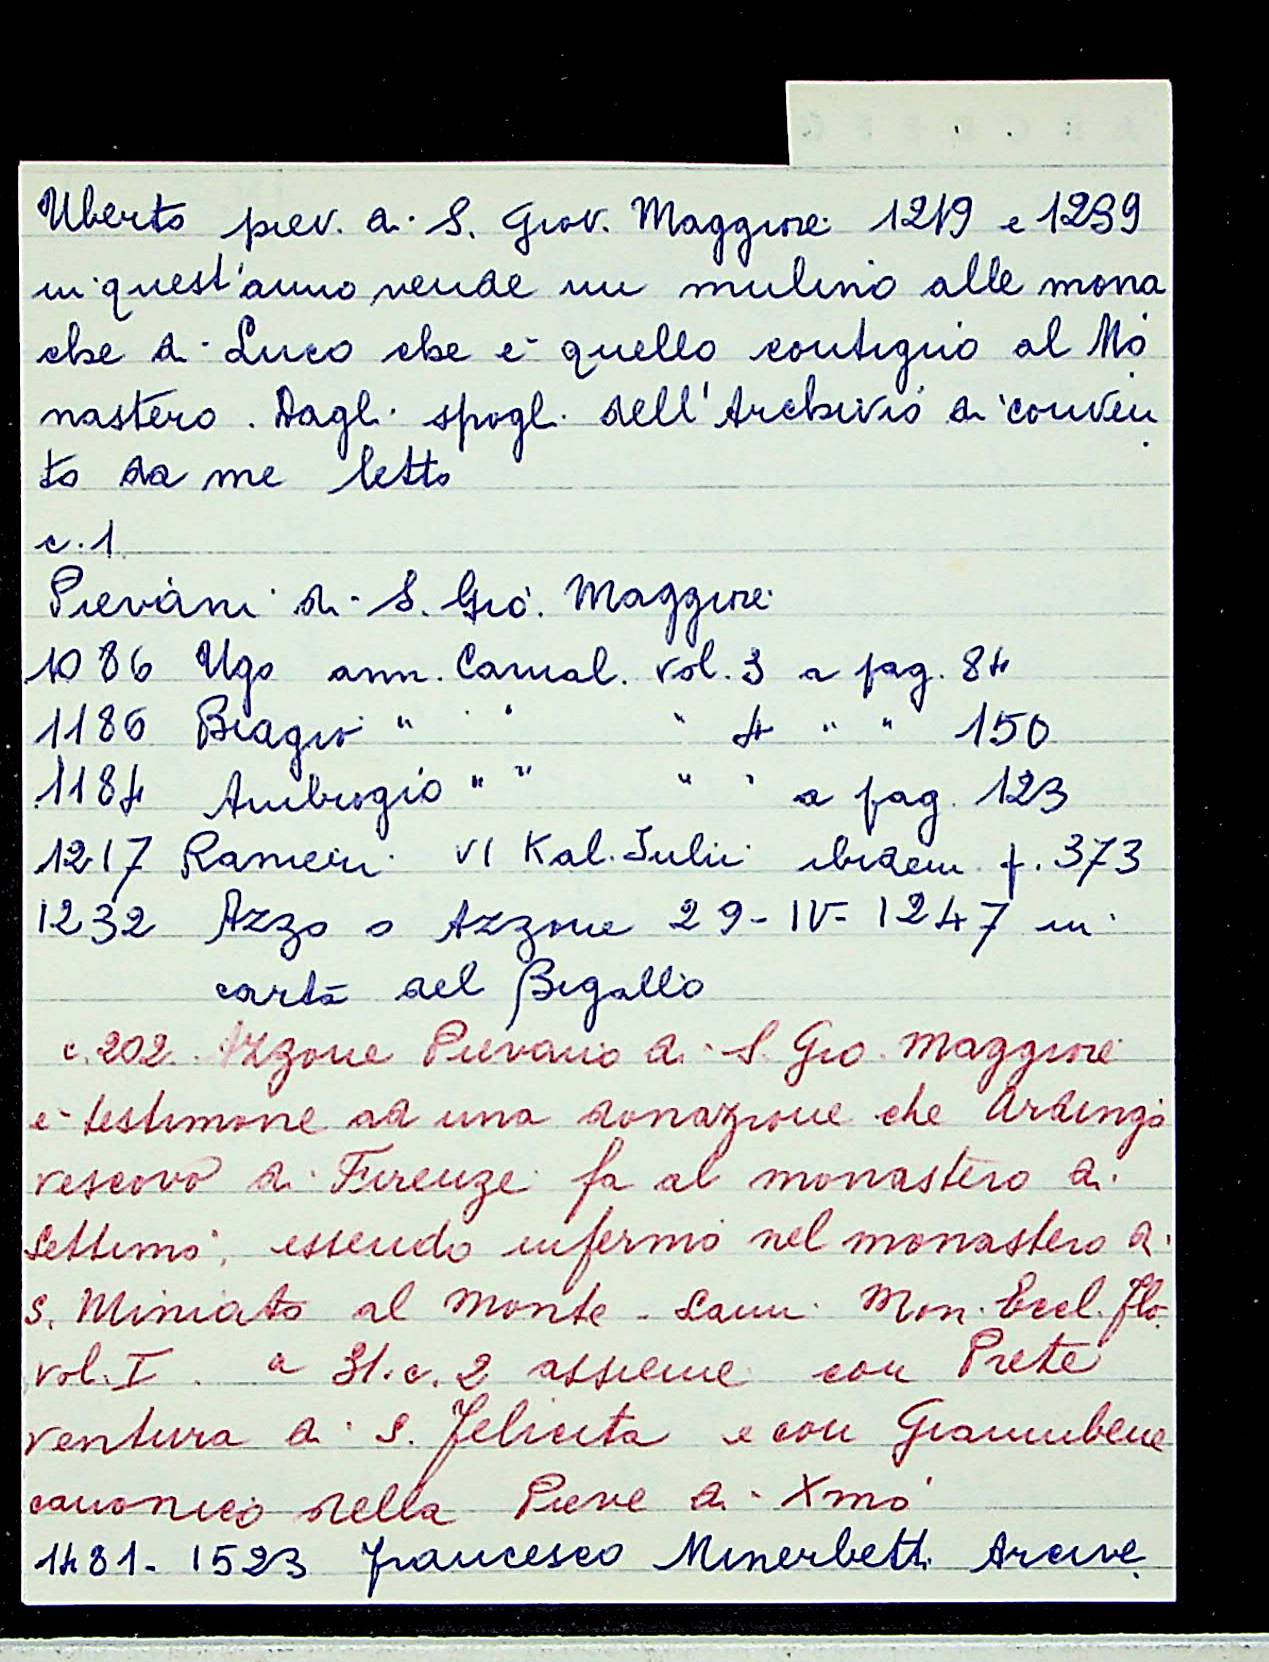 Uberto piev. di S. Giov. Maggiore 1219 e 1239
in quest'anno vende un mulino alle mona
che di Luco che è quello contiguo al Mo
nastero. Dagli spogli dell'Archivio di conven
to da me letto
c. 1
Pievani di S. Gio. Maggiore
1086 Ugo ann. Camal. vol. 3 a pag. 84
1186 Biagio " " " 4 " " 150
1184 Ambrogio " " " " a pag. 123
1217 Ranieri VI Kal. Iulii ibidem p. 373
1232 Azzo o Azzone 29-IV-1247 in
carta del Bigallo
c. 202. Azzone Pievano di S. Gio. Maggiore
è testimone ad una donazione che Ardingo
vescovo di Firenze fa al monastero di
Settimo, essendo infermo nel monastero di
S. Miniato al Monte - Lami Mon. Eccl. Flo.
vol. I. a 31. c. 2 assieme con Prete
ventura di S. Felicita e con Giannibene
canonico della Pieve di Xmo
1481-1523 Francesco Minerbetti Arcive